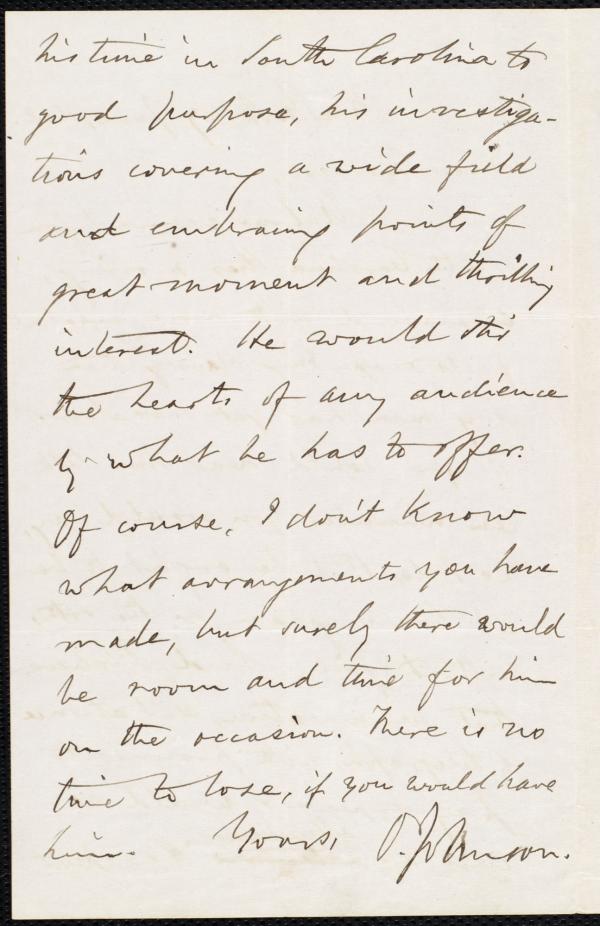 his time in South Carolina to
good purpose, his investiga-
tions covering a wide field
and embracing points of
great moment and thrilling
interest. He would stir
the hearts of any audience
by what he has to offer.
Of course, I don't know
what arrangements you have
made, but surely there would
be room and time for him
on the occasion. There is no
time to lose, if you would have
him. Yours, O. Johnson.